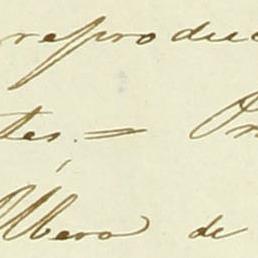 reproduc
tes. = On
Ubero de